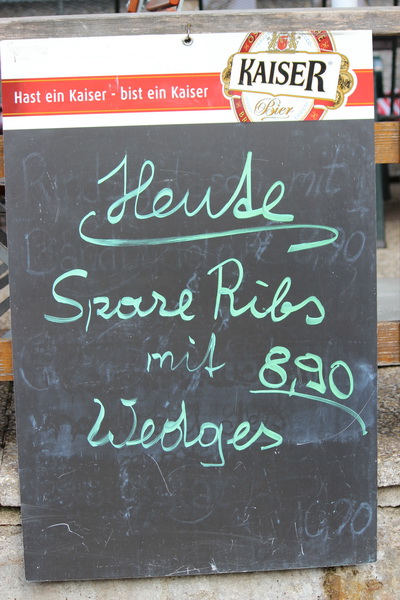 Hast ein Kaiser - bist ein Kaiser
KAISER
Bier
Heute
Spare Ribs
mit 8,90
Wedges